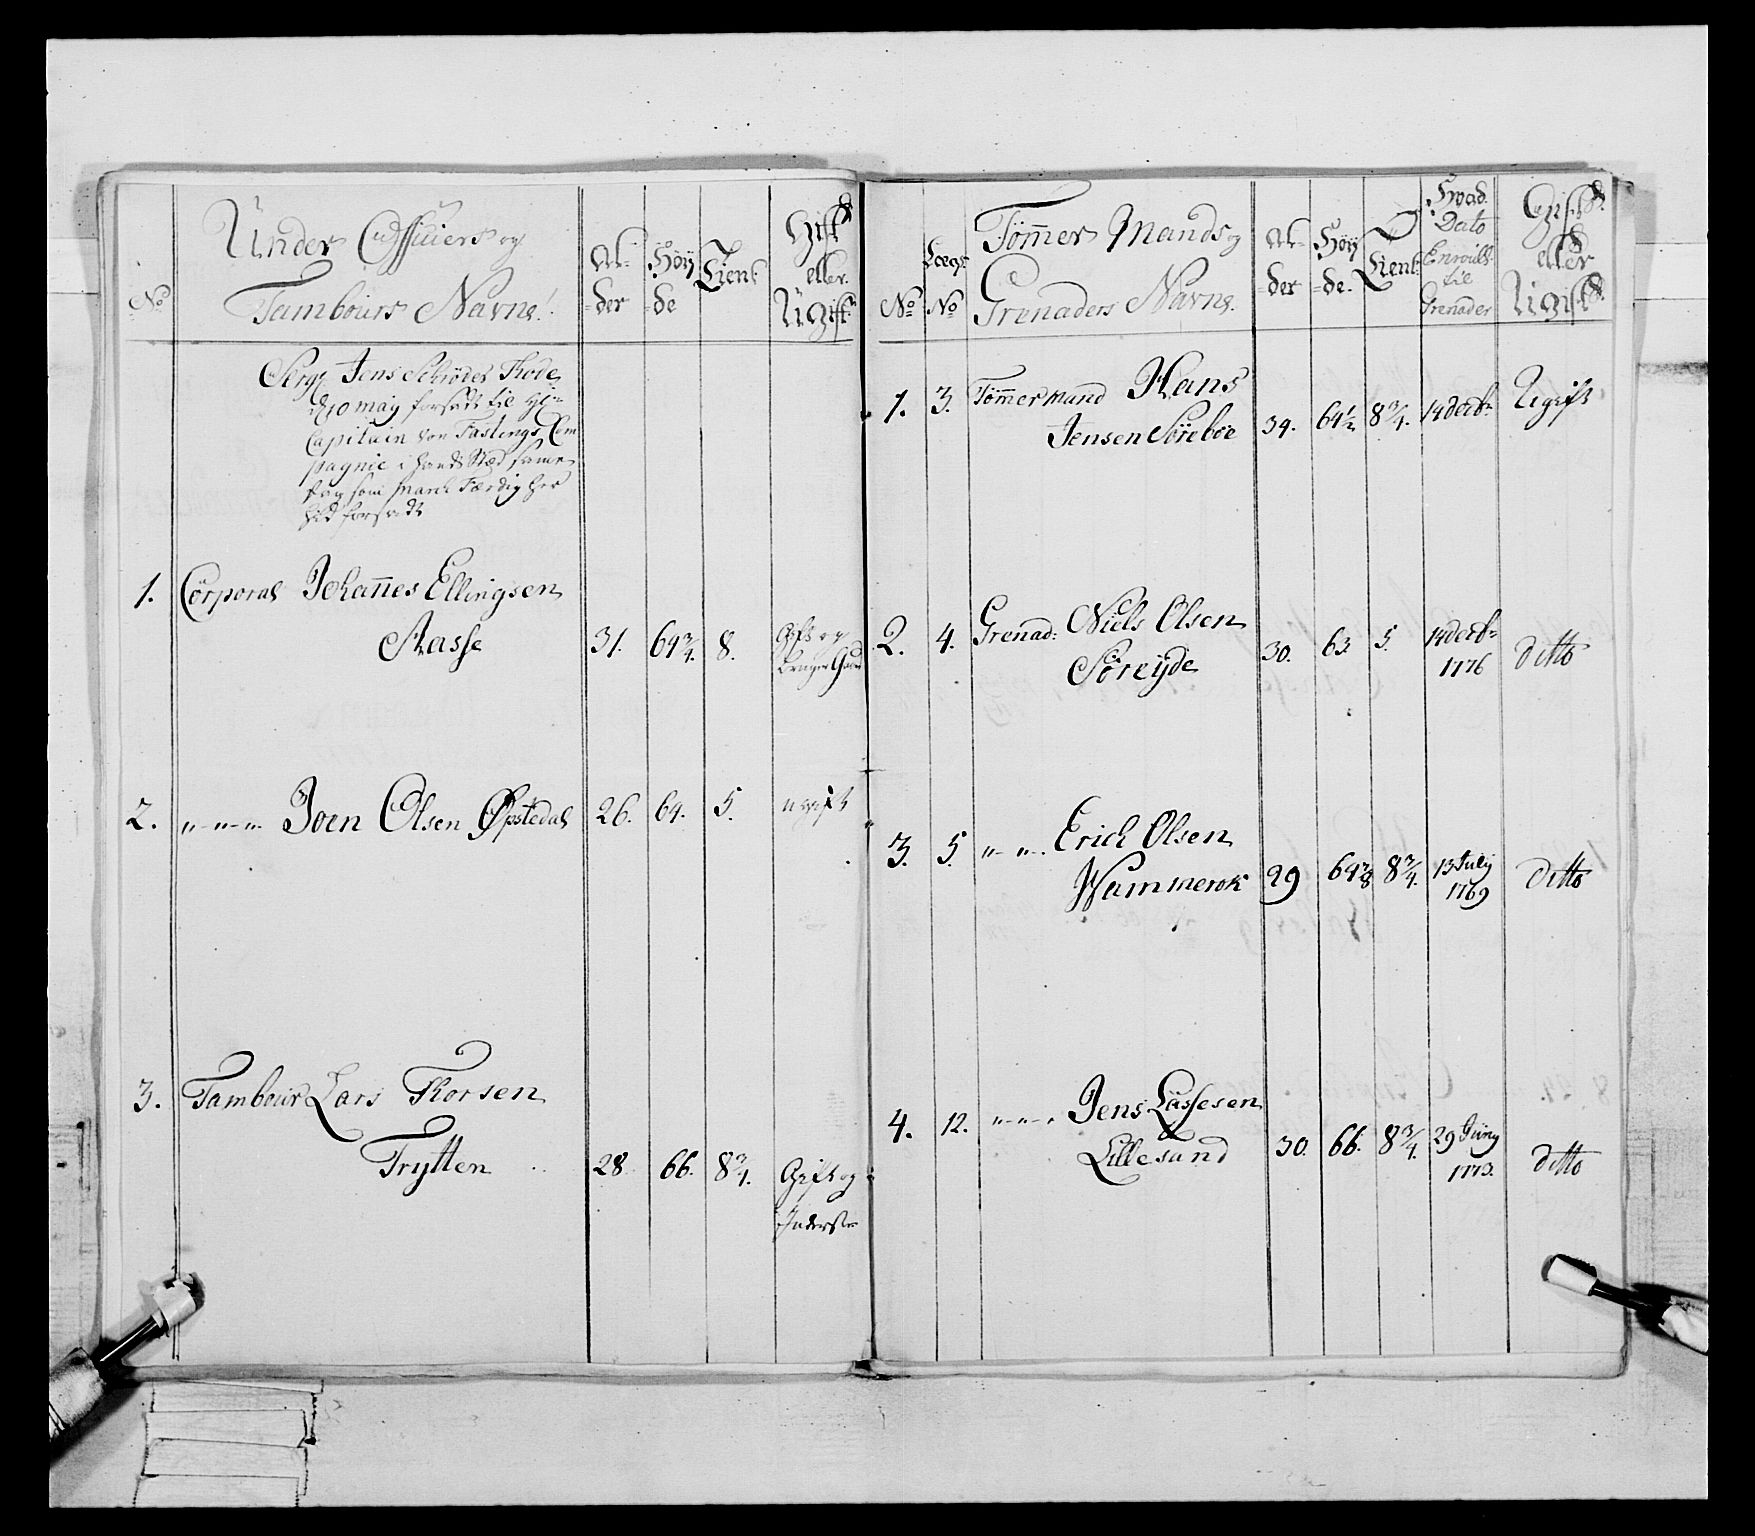 Under Officiers og
Tambours Navne.
No
Al-
-der
Höÿ
-de
Tient
Gift
eller
Ugift
Serg Jens Schröder Thode
d 10 maÿ forsadt til H:
Capitain von Fastings Kom
pagnie i hands Stæd samme
dag som March Færdig her
hid forsadt
1. Corporal Johannes Ellingsen
Aasse 31. 64 3/4. 8. Gift og
bruger Gaar
2. "-"-"- Joen Olsen Øpstedal 26. 64. 5. ugift
3. Tambour Lars Thorsen
Trytten 28. 66. 8 3/4. Gift og
Inderste
No
Lægs
No
Tømmer Mands og
Grenaders Navne.
Al-
-der
Höÿ
-de.
Tient
Hvad
Dato
Enroull:
til
Grenader
Gift
eller
Ugift
1. 3. Tømmermand Hans
Jensen Sörebøe 34. 64 1/2 8 3/4. 14 decbr Ugift
2. 4. Grenad: Niels Olsen
Söreÿde 30. 63 5. 14 decbr
1776 ditto
3. 5. "-"-. Erich Olsen
Wammerok 29 64 3/8 8 3/4. 13 Julÿ
1769 ditto
4. 12. "-"-. Jens Lassesen
Lillesund 30. 66. 8 3/4. 29 Junÿ
1773. ditto